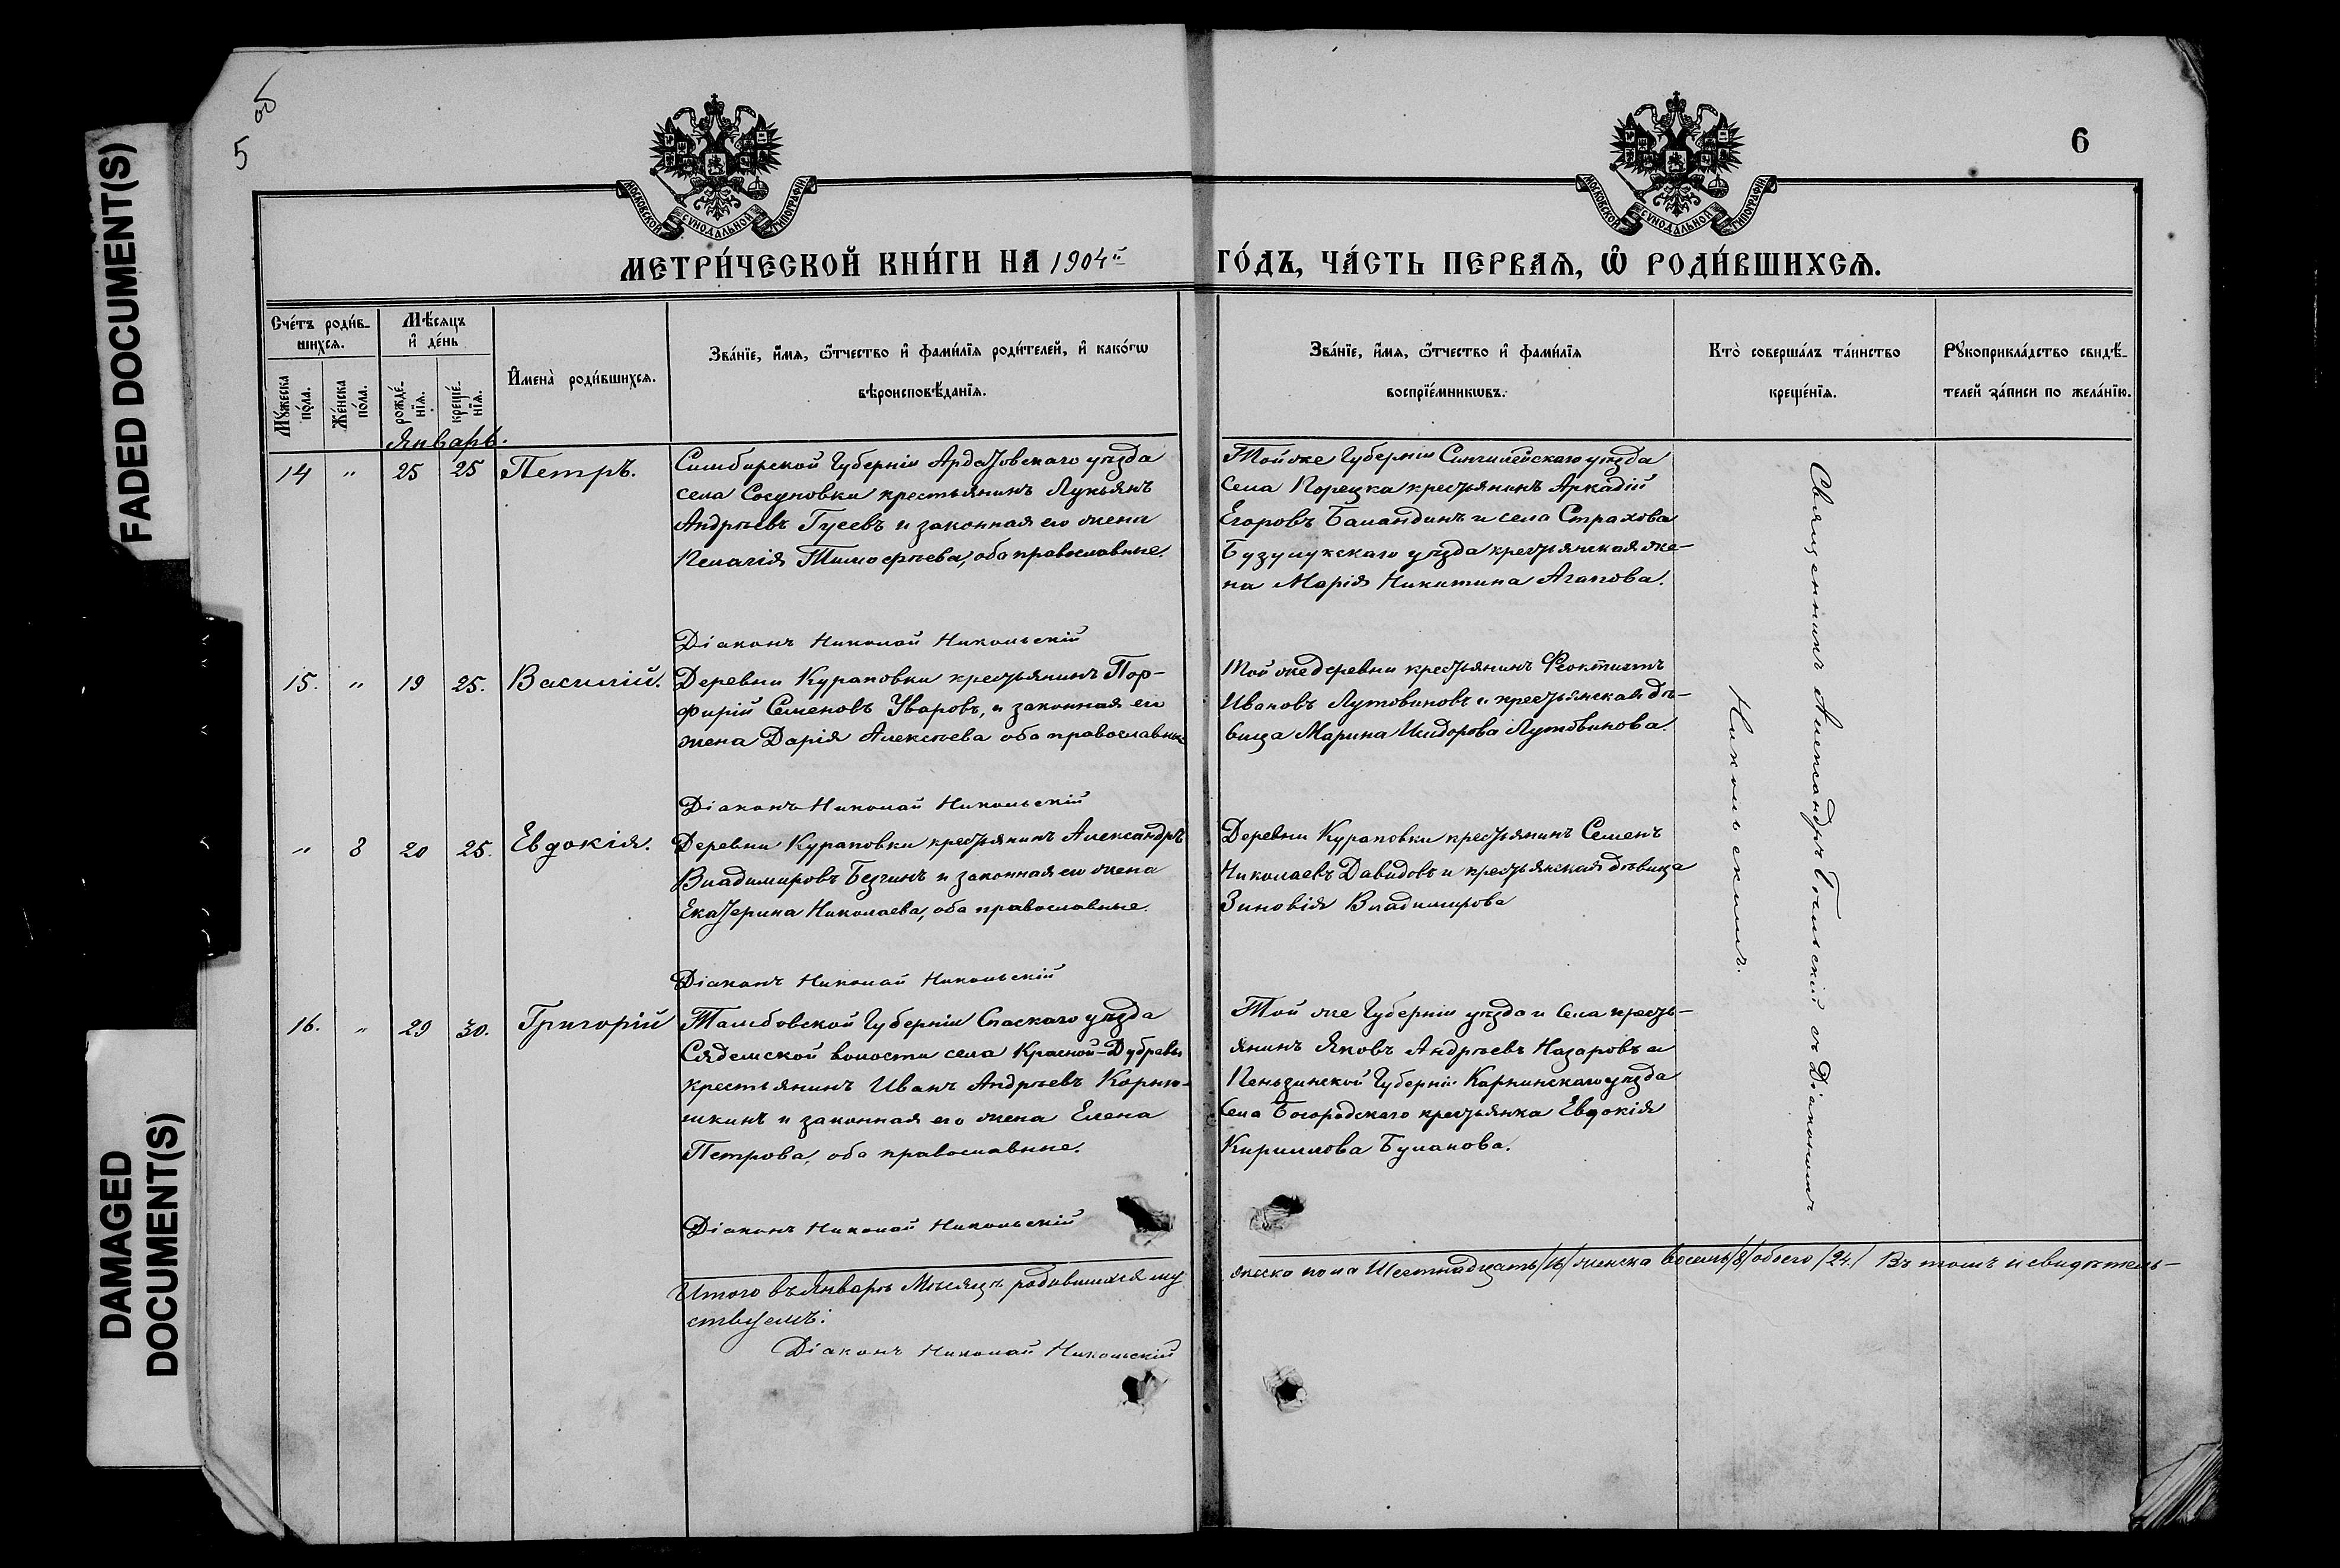 FADED DOCUMENT(S)
DAMAGED
DOCUMENT(S)
5 об
6
МОСКОВСКОЙ СѴНОДАЛЬНОЙ ТИПОГРАФІИ
МОСКОВСКОЙ СѴНОДАЛЬНОЙ ТИПОГРАФІИ
МЕТРИ́ЧЕСКОЙ КНИ́ГИ НА 1904й
ГО́ДЪ, ЧА́СТЬ ПЕРВАѦ, Ѡ҆ РОДИ́ВШИХСѦ.
Сче́тъ роди́в-
шихсѧ.
Мꙋжеска
по́ла.
Же́нска
по́ла.
Мѣ́сѧцъ
и҆ де́нь
рожде́-
нїѧ.
креще́-
нїѧ.
И҆мена̀ роди́вшихсѧ.
Зва́нїе, и҆́мѧ, ѻ҆́тчество и҆ фами́лїѧ роди́телей, и҆ како́гѡ
вѣроисповѣ́данїѧ.
Зва́нїе, и҆́мѧ, ѻ҆́тчество и҆ фами́лїѧ
воспрїе́мникѡвъ.
Кто̀ соверша́лъ та́инство
креще́нїѧ.
Рꙋкоприкла́дство свидѣ́-
телей за́писи по жела́нїю.
Январь.
14 " 25 25 Петръ.
Симбирской Губерніи Ардатовскаго уѣзда
села Сосуновки крестьянинъ Лукьянъ
Андрѣевъ Гусевъ и законная его жена
Пелагія Тимофѣева, оба православные.
Діаконъ Николай Никольскій
Той же Губерніи Сингилейскаго уѣзда
Села Порецка крестьянинъ Аркадій
Егоровъ Баландинъ и села Страхова
Бузулукскаго уѣзда крестьянская же-
на Марія Никитина Агапова.
15. " 19 25. Василій.
Деревни Кураповки крестьянинъ Пор-
фирій Семеновъ Уваровъ, и законная его
жена Дарія Алексѣева оба православные
Діаконъ Николай Никольскій
Той же деревни крестьянинъ Феоктистъ
Ивановъ Лутовиновъ и крестьянская дѣ-
вица Марина Исидорова Лутовинова.
" 8 20 25. Евдокія.
Деревни Кураповки крестьянинъ Александръ
Владимировъ Безгинъ и законная его жена
Екатерина Николаева, оба православные.
Діаконъ Николай Никольскій
Деревни Кураповки крестьянинъ Семенъ
Николаевъ Давидовъ и крестьянская дѣвица
Зиновія Владимирова
16. " 29 30. Григорій
Тамбовской Губерніи Спаскаго уѣзда
Сядемской волости села Красной-Дубравы
крестьянинъ Иванъ Андрѣевъ Корню-
шкинъ и законная его жена Елена
Петрова, оба православные.
Діаконъ Николай Никольскій
Той же Губерніи уѣзда и Села кресть-
янинъ Яковъ Андрѣевъ Назаровъ и
Пеньзинской Губерніи Карнинскаго уѣзда
Села Богородскаго крестьянка Евдокія
Кириллова Буланова.
Священникъ Александръ Бѣльскій съ Діакономъ
Никольскимъ.
Итого въ Январѣ Мѣсяцѣ родившихся му
жеска пола Шестнадцать /16/ женска восемь /8/ обоего /24/ Въ томъ и свидѣтель-
ствуемъ:
Діаконъ Николай Никольскій